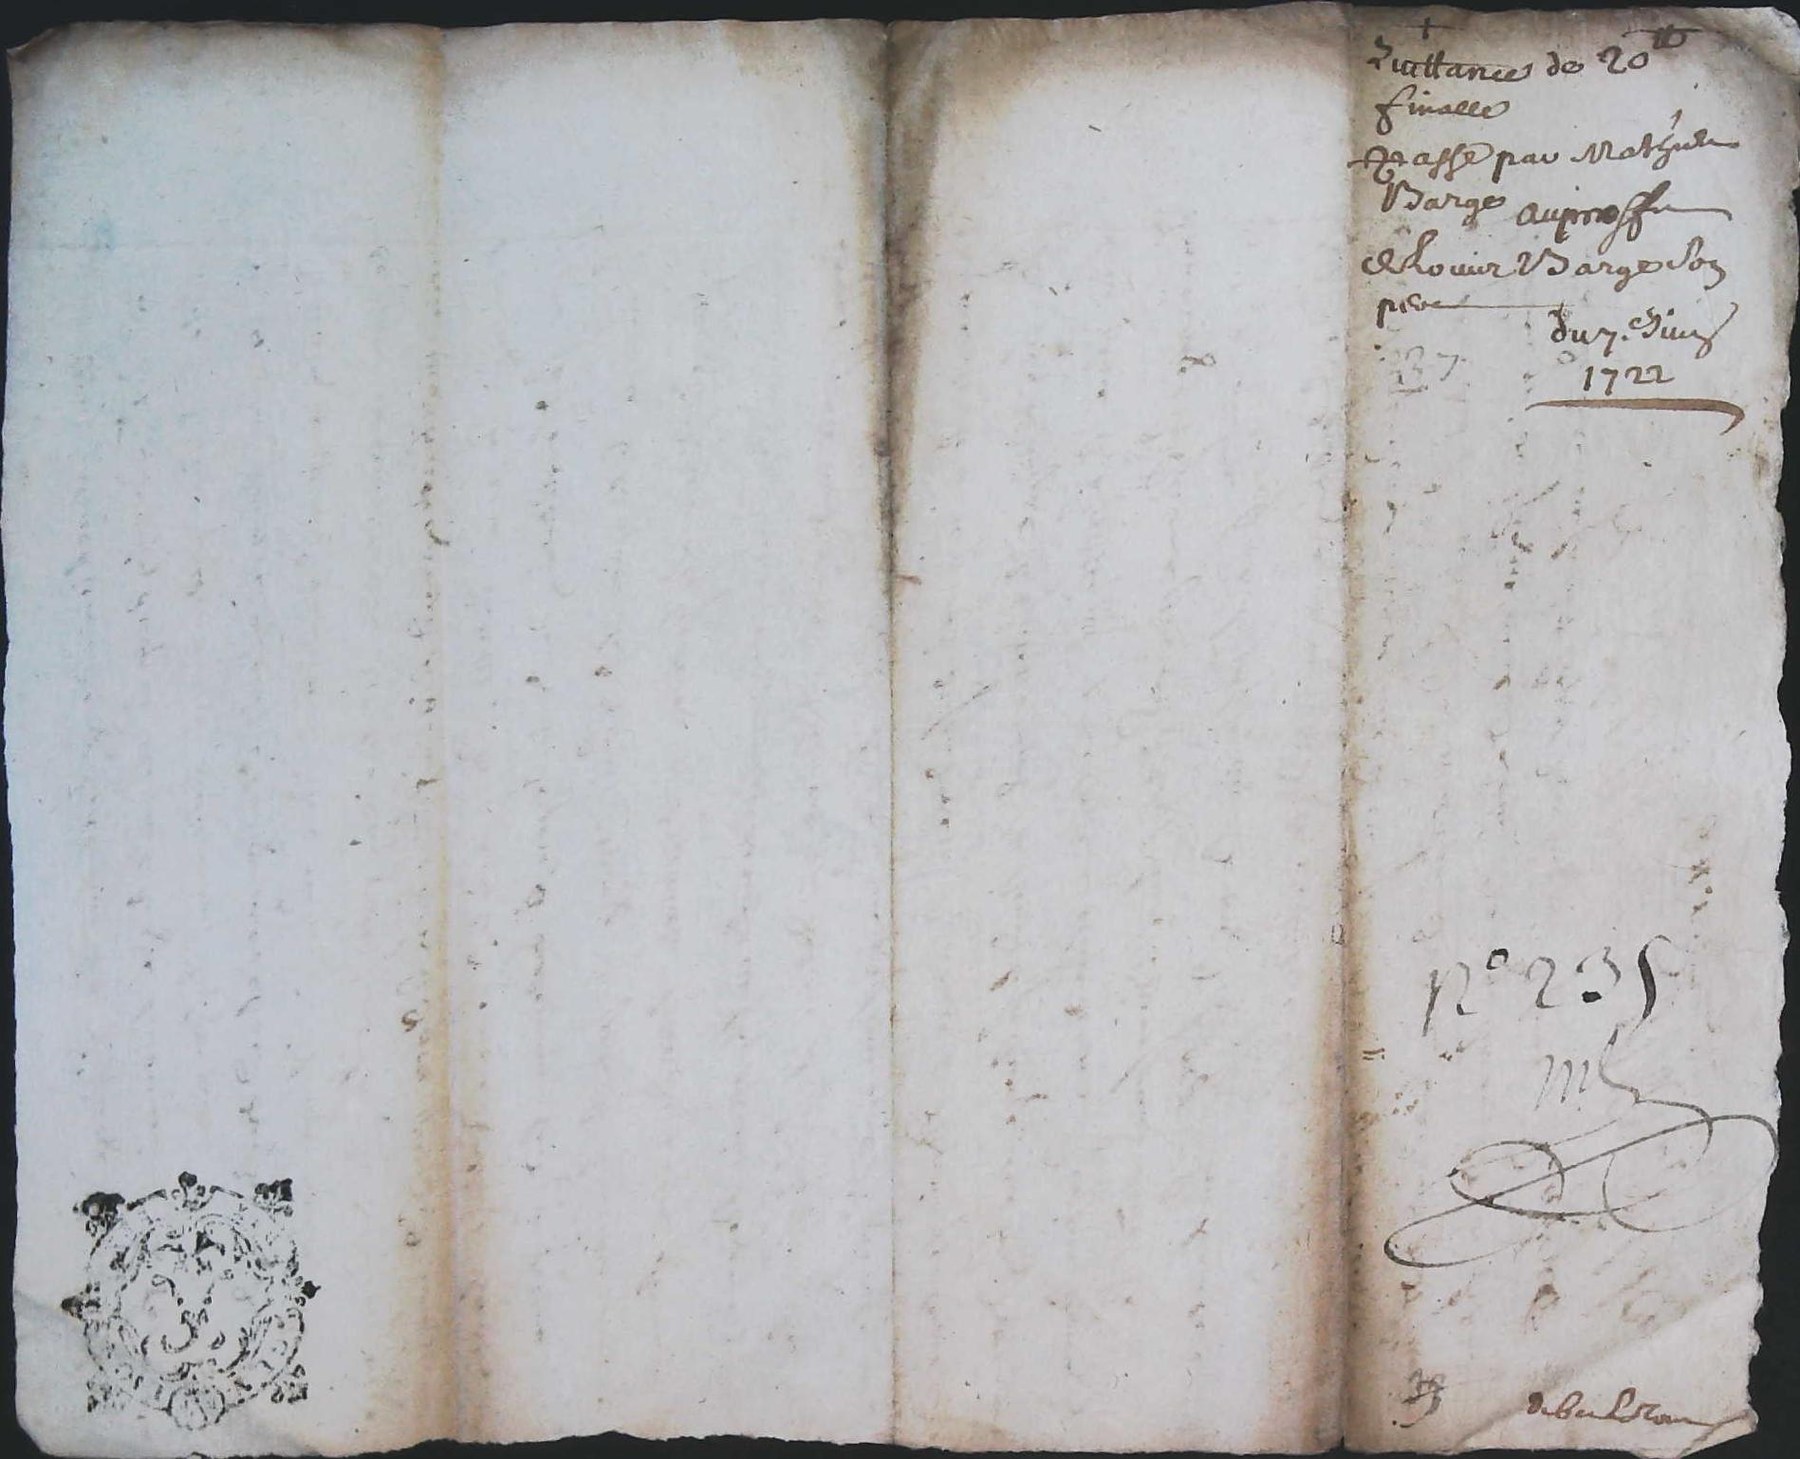 +
Quittance de 20 ₶
finalle
Passé par Mathieu
Barge au proffit
de Louis Barge son
pere
du 7.e Juin
1722
237
n° 235